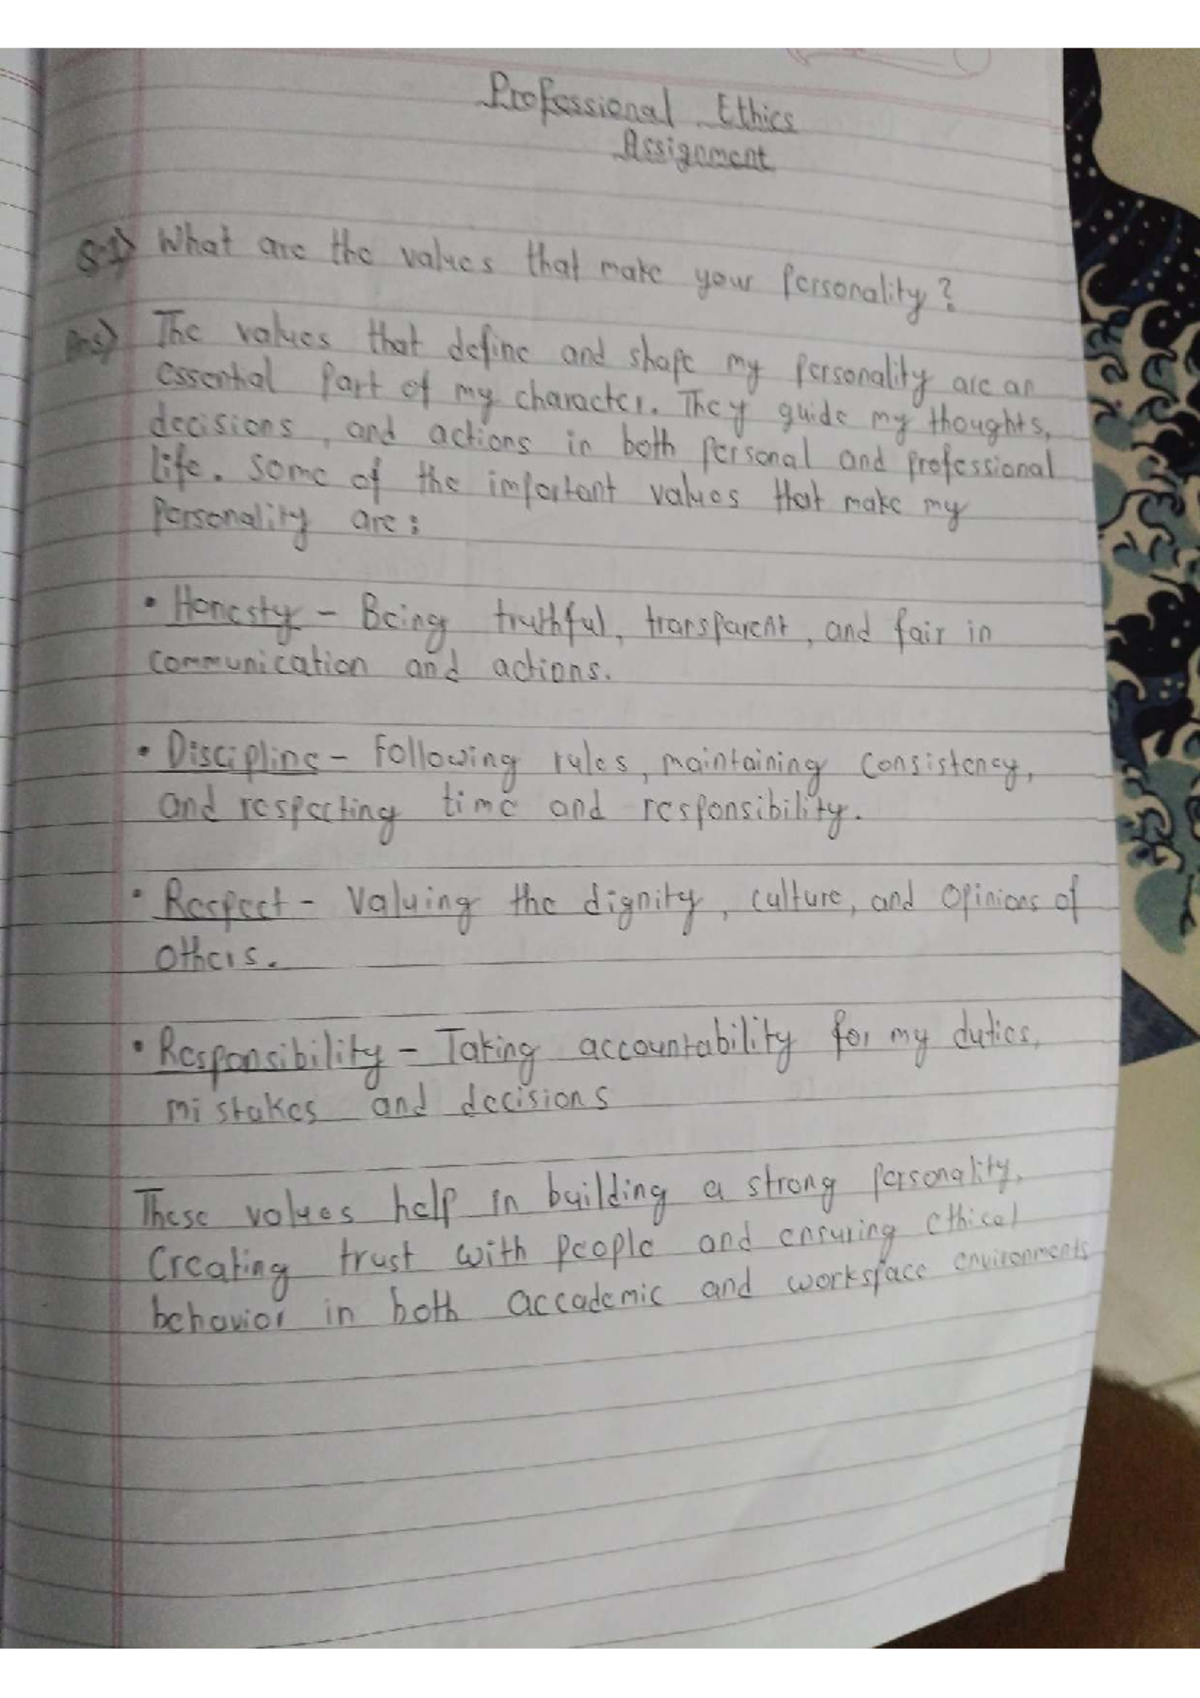 Professional Ethics
Assignment
Q-1) What are the values that make your personality?
Ans) The values that define and shape my personality are an
essential part of my character. They guide my thoughts,
decisions, and actions in both personal and professional
life. Some of the important values that make my
Personality are:
• Honesty - Being truthful, transparent, and fair in
communication and actions.
• Discipline - Following rules, maintaining consistency,
and respecting time and responsibility.
• Respect - Valuing the dignity, culture, and opinions of
others.
• Responsibility - Taking accountability for my duties,
mistakes and decisions
These values help in building a strong personality,
Creating trust with people and ensuring ethical
behavior in both accademic and workspace environments